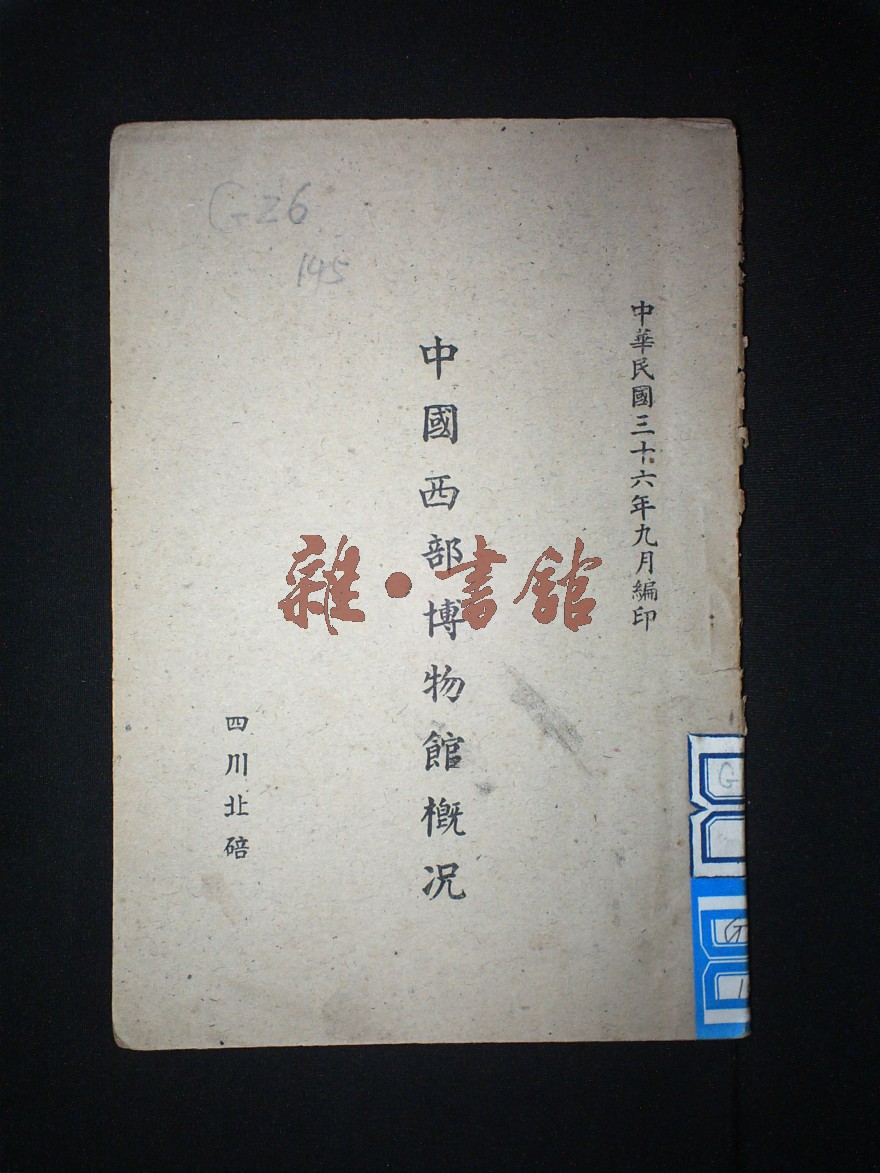 中華民國三十六年九月編印
中國西部博物館概況
四川北碚
G26
145
雜·書館
G
G
1